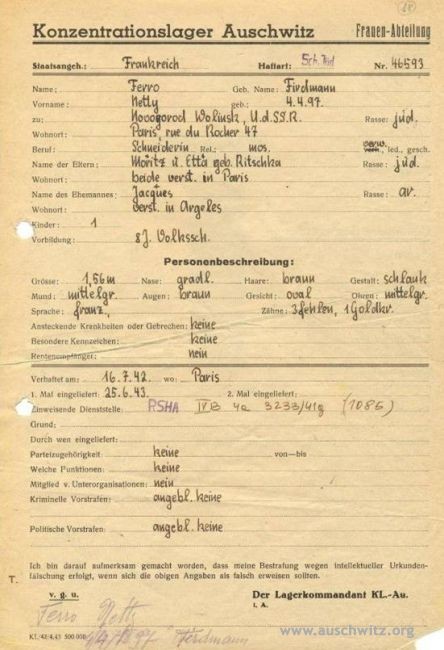 Konzentrationslager Auschwitz Frauen-Abteilung
Staatsangeh.: Frankreich Haftart: Sch. Jud Nr. 46593
Name: Ferro Geb. Name: Firdmann
Vorname: Netty geb.: 4.4.97.
zu: Nowogorod Wolinsk, U.d.SS.R. Rasse: jüd.
Wohnort: Paris, rue du Rocher 47
Beruf: Schneiderin Rel.: mos. verw. verh., led., gesch.
Name der Eltern: Moritz u. Etta geb. Ritschka Rasse: jüd.
Wohnort: beide verst. in Paris
Name des Ehemannes: Jacques Rasse: ar.
Wohnort: verst. in Argeles
Kinder: 1
Vorbildung: 8 J. Volkssch.
Personenbeschreibung:
Grösse: 1,56m Nase: gradl. Haare: braun Gestalt: schlank
Mund: mittelgr. Augen: braun Gesicht: oval Ohren: mittelgr.
Sprache: franz., Zähne: 3 fehlen, 1 Goldkr.
Ansteckende Krankheiten oder Gebrechen: keine
Besondere Kennzeichen: keine
Rentenempfänger: nein
Verhaftet am: 16.7.42. wo: Paris
1. Mal eingeliefert: 25.6.43. 2. Mal eingeliefert:
Einweisende Dienststelle: RSHA IV B 4a 3233/41g (1085)
Grund:
Durch wen eingeliefert:
Parteizugehörigkeit: keine von—bis
Welche Funktionen: keine
Mitglied v. Unterorganisationen: nein
Kriminelle Vorstrafen: angebl. keine
Politische Vorstrafen: angebl. keine
Ich bin darauf aufmerksam gemacht worden, dass meine Bestrafung wegen intellektueller Urkunden-
fälschung erfolgt, wenn sich die obigen Angaben als falsch erweisen sollten.
T.
v. g. u. Der Lagerkommandant KL.-Au.
I. A.
Ferro Netty
Ferdmann
KL/42/4.43 500 000
www.auschwitz.org